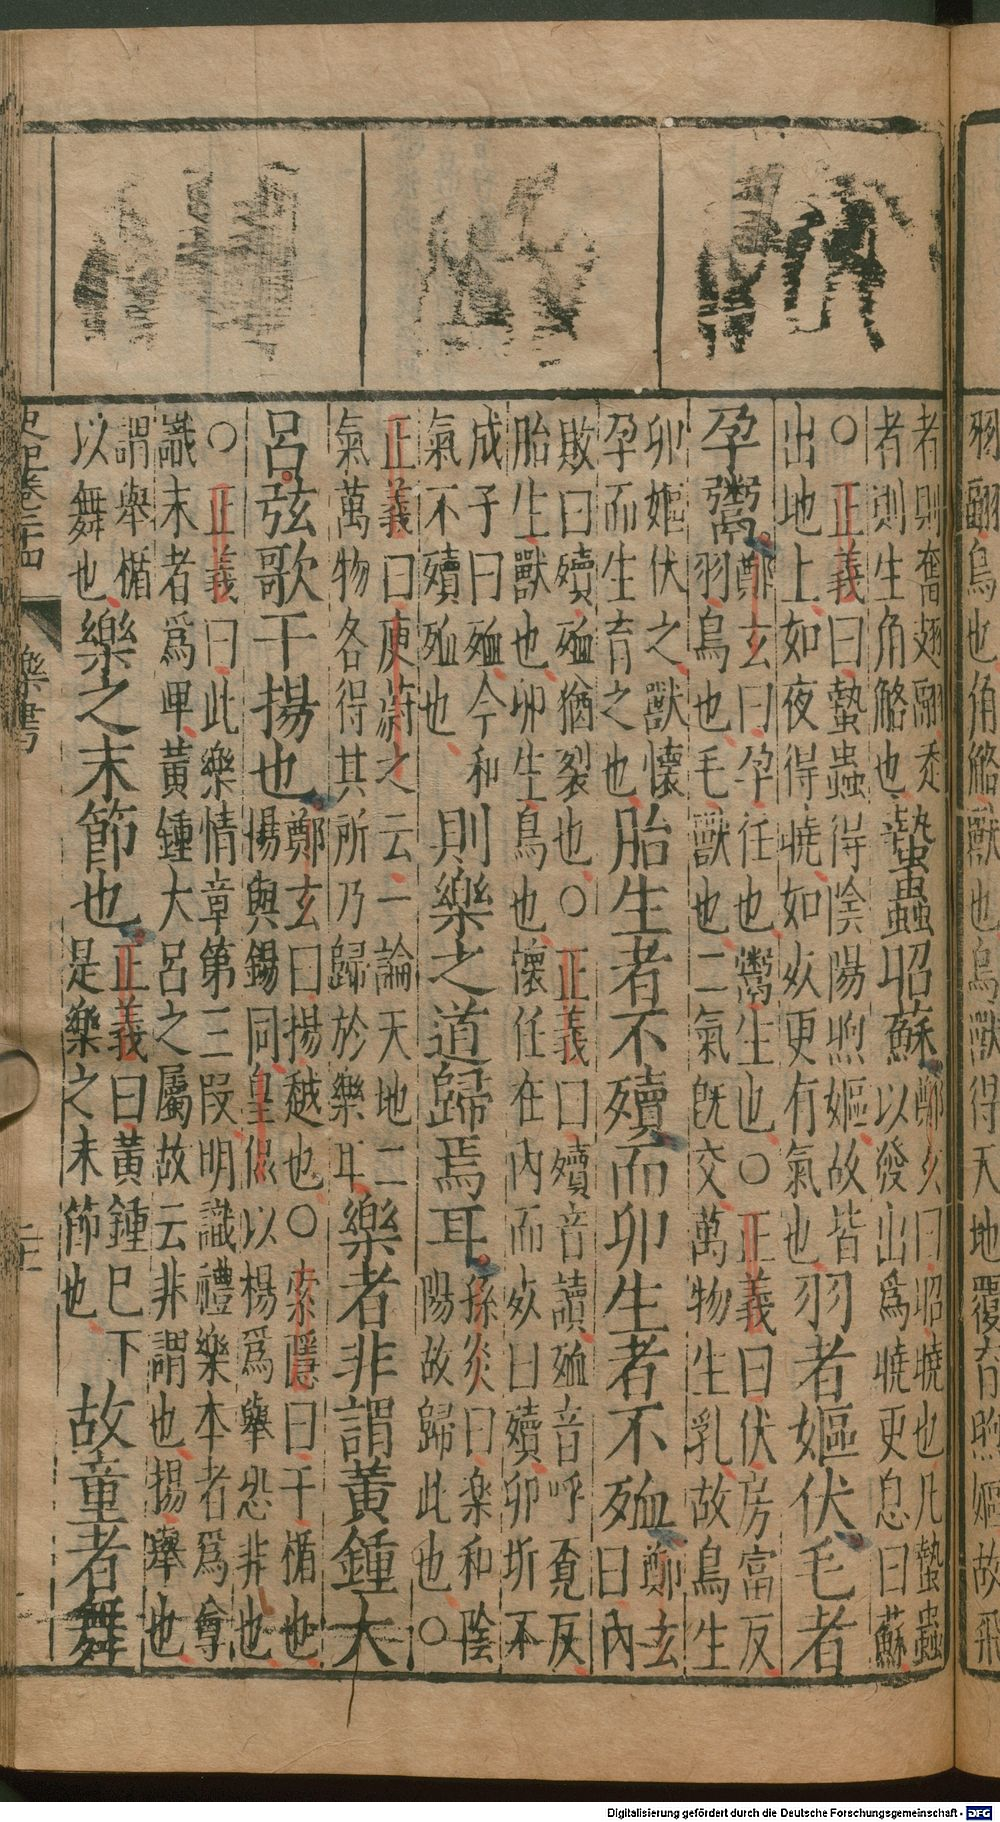 翮鳥也角觡獸也鳥獸得天地覆育煦嫗故飛
者則奮翅翮走
者則生角觡也
蟄蟲昭蘇
鄭玄曰昭曉也凡蟄蟲
以發出爲曉更息曰蘇
○正義曰蟄蟲得陰陽煦嫗故皆
出地上如夜得曉如死更有氣也
羽者嫗伏毛者
孕鬻
鄭玄曰孕任也鬻生也○正義曰伏房富反
羽鳥也毛獸也二氣旣交萬物生乳故鳥生
卵嫗伏之獸懷
孕而生育之也
胎生者不殰而卵生者不殈
鄭玄
曰內
敗曰殰殈猶裂也○正義曰殰音讀殈音呼覔反
胎生獸也卵生鳥也懷任在內而死曰殰卵坼不
成子曰殈今和
氣不殰殈也
則樂之道歸焉耳
孫炎曰樂和陰
陽故歸此也○
正義曰庾蔚之云一論天地二
氣萬物各得其所乃歸於樂耳
樂者非謂黃鍾大
呂弦歌干揚也
鄭玄曰揚越也○索隱曰干楯也
揚與錫同皇侃以楊爲舉恐非也
○正義曰此樂情章第三段明識禮樂本者爲尊
識末者爲卑黃鍾大呂之屬故云非謂也揚舉也
謂舉楯
以舞也
樂之末節也
正義曰黃鍾已下
是樂之末節也
故童者舞
史記卷二十四
樂書
Digitalisierung gefördert durch die Deutsche Forschungsgemeinschaft - DFG